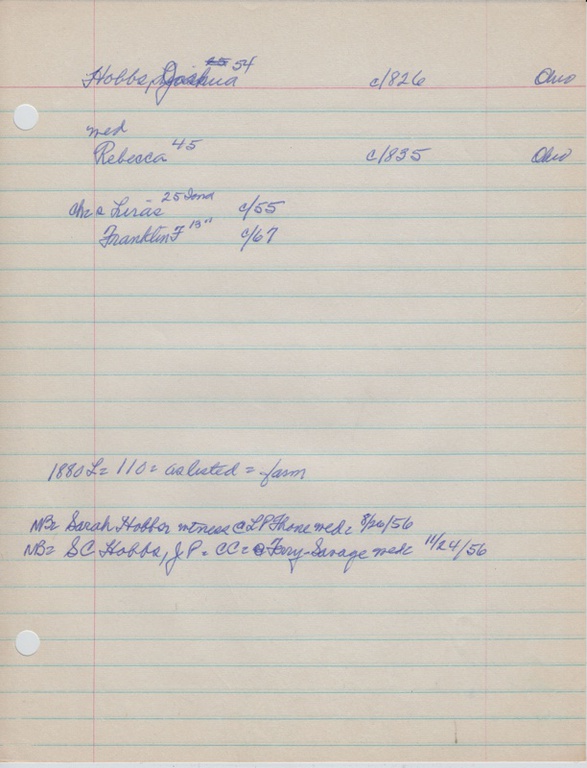 Hobbs, Joshua 54 c/826 Ohio
med
Rebecca 45 c/835 Ohio
25 c/55
Franklin F 13" c/67
1880 L = 110 = as listed = farm
NB = Sarah Hobbs witness @ L P med = 8/26/56
NB = S C Hobbs, J P = CC = Savage med = 11/24/56